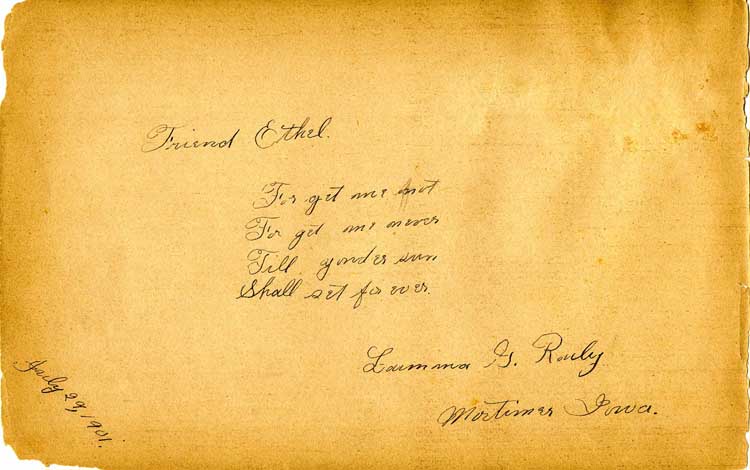 Friend Ethel.
For get me not
For get me never
Till yonder sun
Shall set for ever.
G.
Mortimer Iowa.
July 29, 1901.